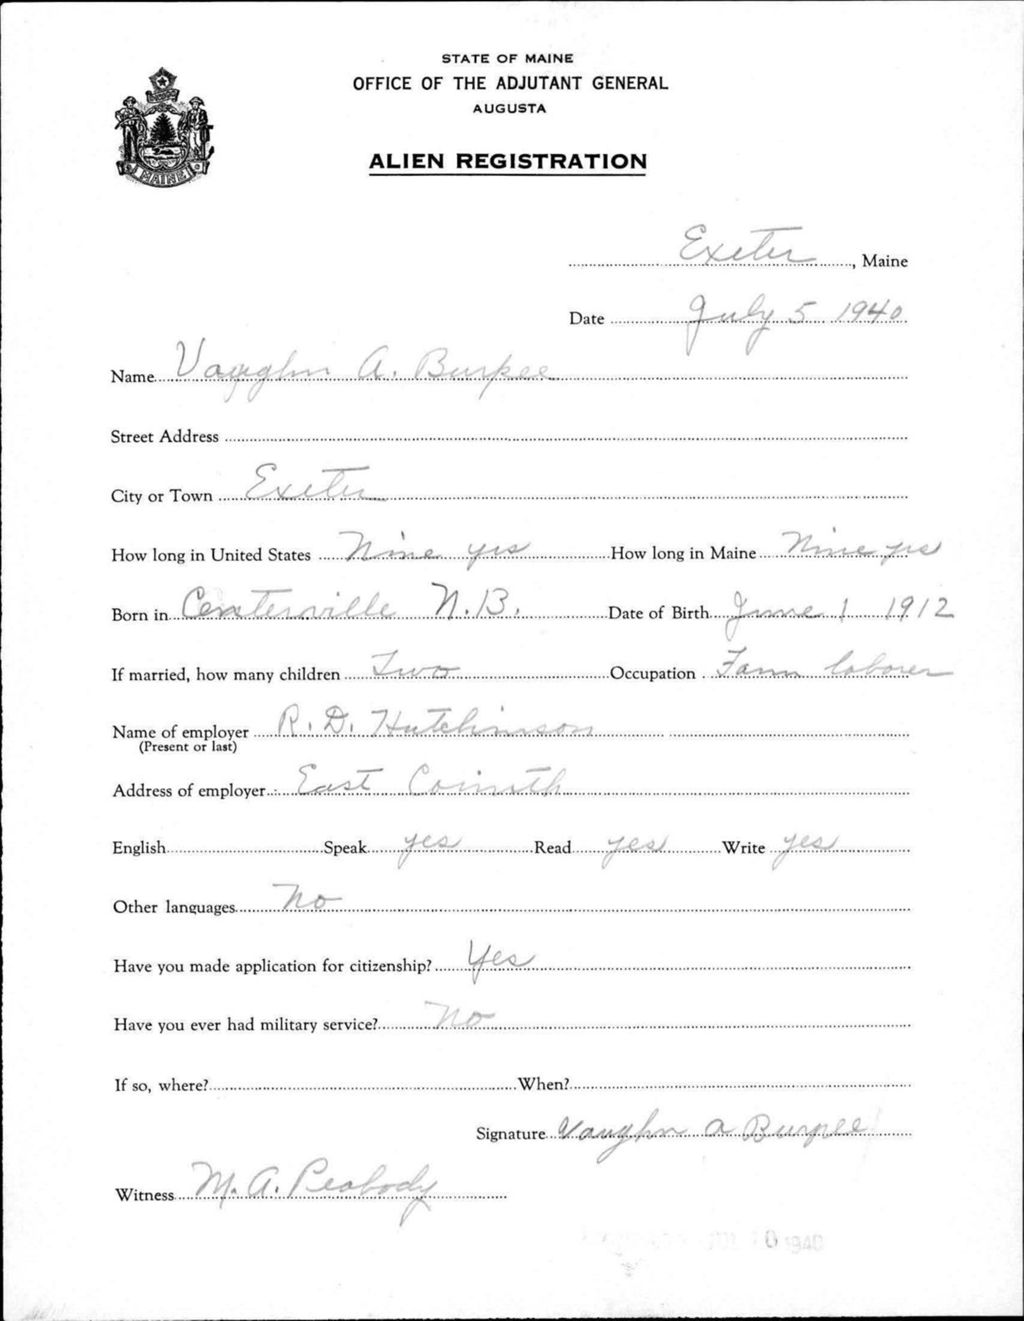 STATE OF MAINE
OFFICE OF THE ADJUTANT GENERAL
AUGUSTA
ALIEN REGISTRATION
MAINE
Exeter, Maine
Date July 5 1940
Name Vaughn A. Burpee
Street Address
City or Town Exeter
How long in United States Nine yrs How long in Maine Nine yrs
Born in Centerville N.B. Date of Birth June 1 1912
If married, how many children Two Occupation Farm laborer
Name of employer R. D. Hutchinson
(Present or last)
Address of employer East Corinth
English Speak yes Read yes Write yes
Other languages No
Have you made application for citizenship? Yes
Have you ever had military service? No
If so, where? When?
Signature Vaughn A Burpee
Witness M. A. Peabody
10 1940